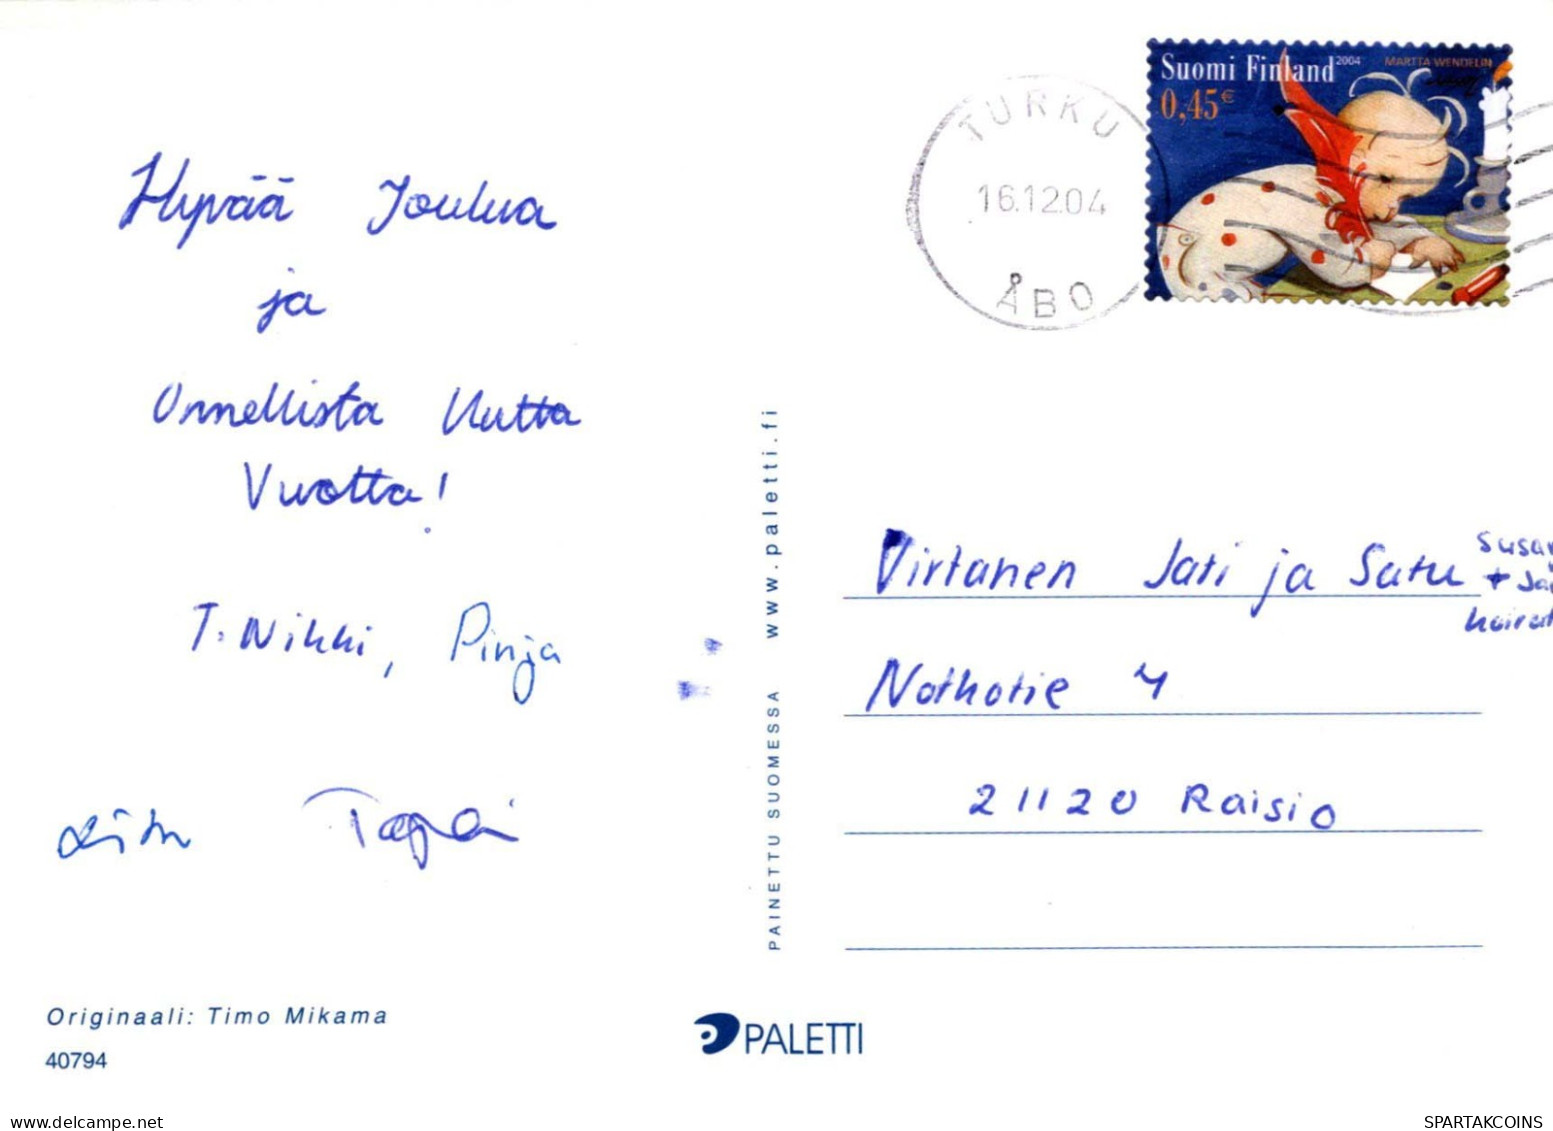 Suomi Finland 2004 MARTTA WENDELIN
0,45€
TURKU
16.12.04
ÅBO
Hyvää Joulua
ja
Onnellista Uutta
Vuotta!
T. Nikki, Pinja
www.paletti.fi
PAINETTU SUOMESSA
Virtanen Jati ja Satu
Nothotie 4
21120 Raisio
Originaali: Timo Mikama
40794
PALETTI
my.delcampe.net
SPARTAKCOINS